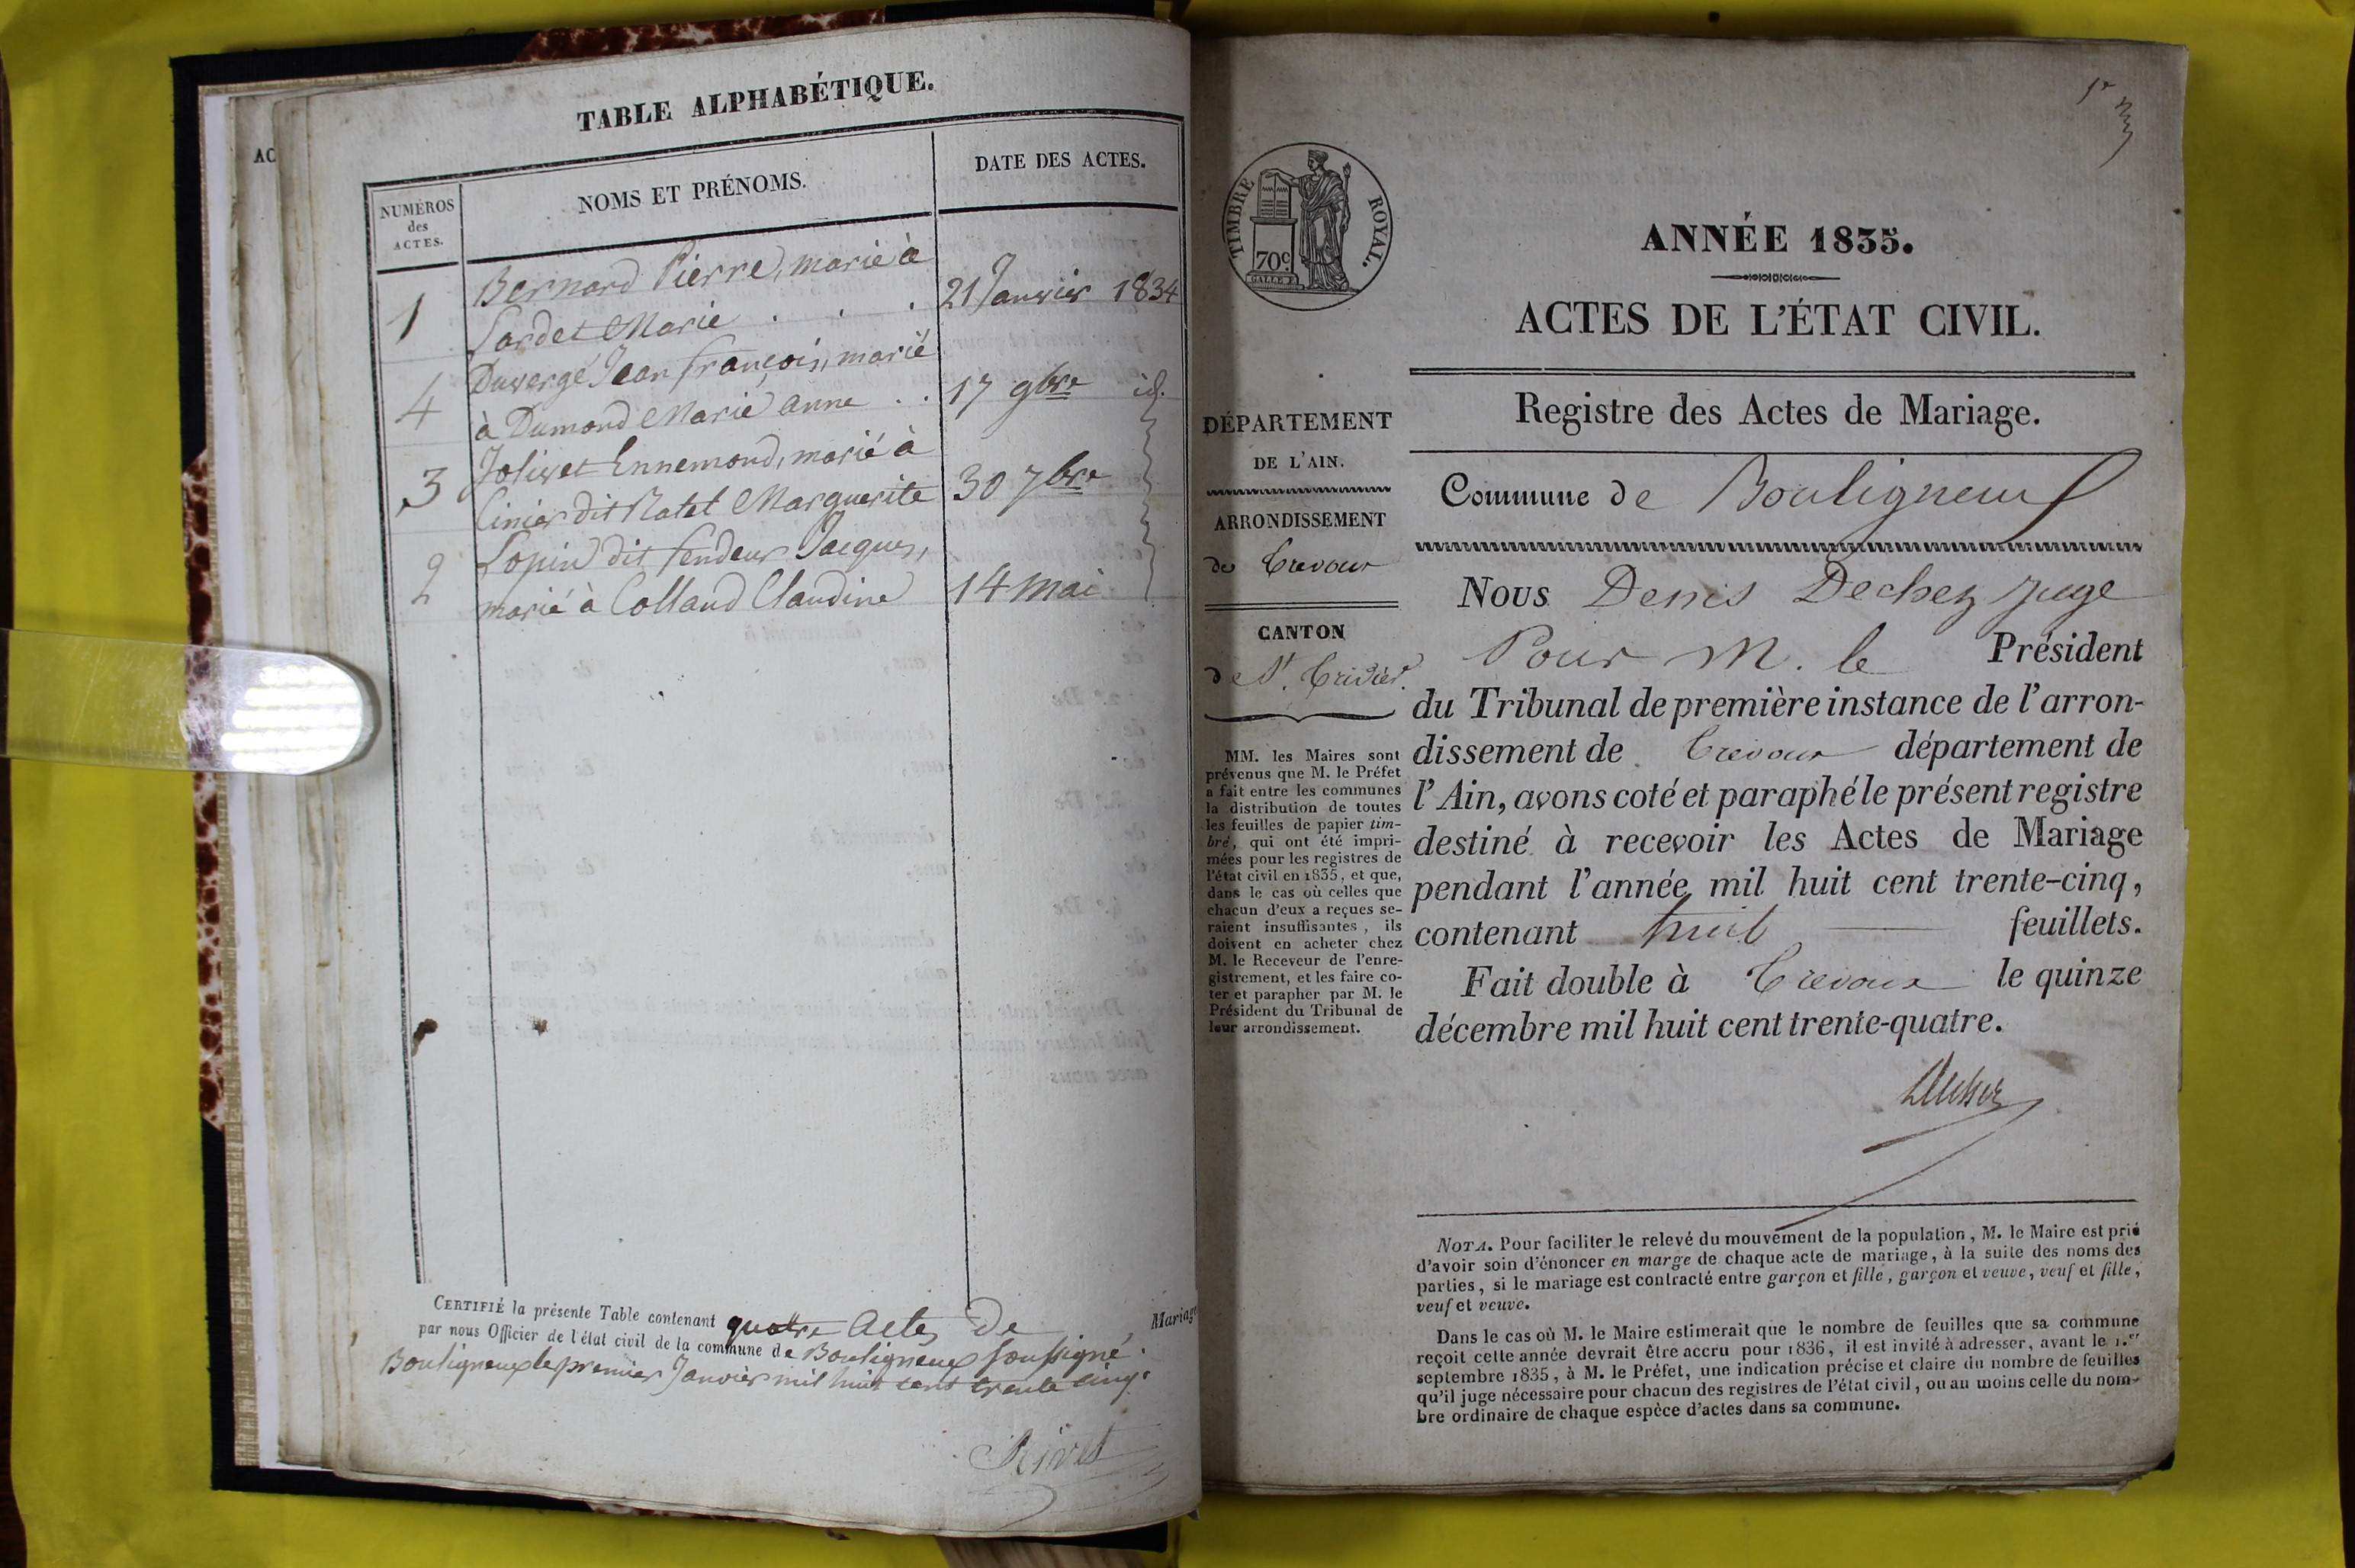 AC
TABLE ALPHABÉTIQUE.
NUMÉROS
des
ACTES.
NOMS ET PRÉNOMS.
DATE DES ACTES.
1
Bernard Pierre, marié à
Sardet Marie . . .
21 Janvier 1834
4
Duvergé Jean françois, marié
à Dumond Marie Anne . .
17 9bre id.
3
Jolivet Ennemond, marié à
Cinier dit Ratet Marguerite
30 7bre
2
Lopin dit fendeur Jacques,
marié à Colland Claudine
14 Mai
CERTIFIÉ la présente Table contenant quatre Actes de Mariage
par nous Officier de l'état civil de la commune de Bouligneux soussigné.
Bouligneux le premier Janvier mil huit cent trente cinq.
Rivet
1er
TIMBRE ROYAL.
70c.
ANNÉE 1835.
ACTES DE L'ÉTAT CIVIL.
Registre des Actes de Mariage.
DÉPARTEMENT
DE L'AIN.
ARRONDISSEMENT
de Trevoux
CANTON
de St. Trivier.
MM. les Maires sont
prévenus que M. le Préfet
a fait entre les communes
la distribution de toutes
les feuilles de papier tim-
bré, qui ont été impri-
mées pour les registres de
l'état civil en 1835, et que,
dans le cas où celles que
chacun d'eux a reçues se-
raient insuffisantes, ils
doivent en acheter chez
M. le Receveur de l'enre-
gistrement, et les faire co-
ter et parapher par M. le
Président du Tribunal de
leur arrondissement.
Commune de Bouligneux
Nous Denis Dechez juge
Pour M. le Président
du Tribunal de première instance de l'arron-
dissement de Trevoux département de
l'Ain, avons coté et paraphé le présent registre
destiné à recevoir les Actes de Mariage
pendant l'année mil huit cent trente-cinq,
contenant huit feuillets.
Fait double à Trevoux le quinze
décembre mil huit cent trente-quatre.
Dechez
NOTA. Pour faciliter le relevé du mouvement de la population, M. le Maire est prié
d'avoir soin d'énoncer en marge de chaque acte de mariage, à la suite des noms des
parties, si le mariage est contracté entre garçon et fille, garçon et veuve, veuf et fille,
veuf et veuve.
Dans le cas où M. le Maire estimerait que le nombre de feuilles que sa commune
reçoit cette année devrait être accru pour 1836, il est invité à adresser, avant le 1.er
septembre 1835, à M. le Préfet, une indication précise et claire du nombre de feuilles
qu'il juge nécessaire pour chacun des registres de l'état civil, ou au moins celle du nom-
bre ordinaire de chaque espèce d'actes dans sa commune.